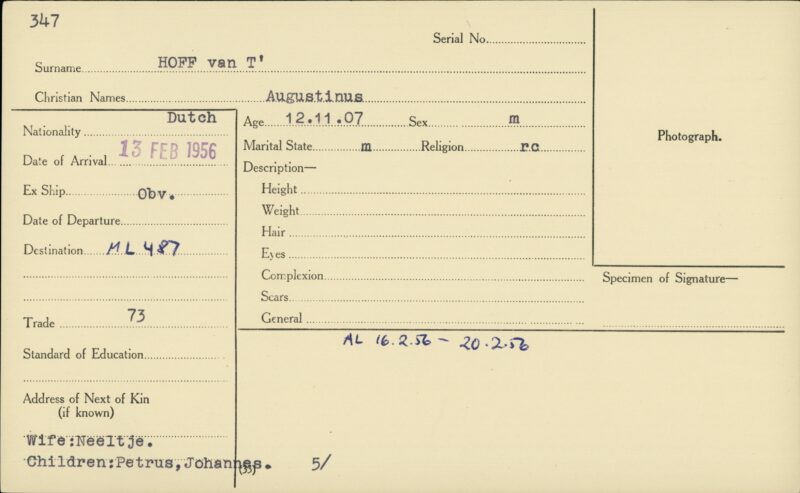 347
Serial No.
Surname HOFF van T'
Christian Names Augustinus
Nationality Dutch
Date of Arrival 13 FEB 1956
Ex Ship Obv.
Date of Departure
Destination ML 487
Trade 73
Standard of Education
Address of Next of Kin
(if known)
Wife:Neeltje.
Children:Petrus,Johannes. 5/
(35)
Age 12.11.07 Sex m
Marital State m Religion rc
Description—
Height
Weight
Hair
Eyes
Complexion
Scars
General
AL 16.2.56 – 20.2.56
Photograph.
Specimen of Signature—